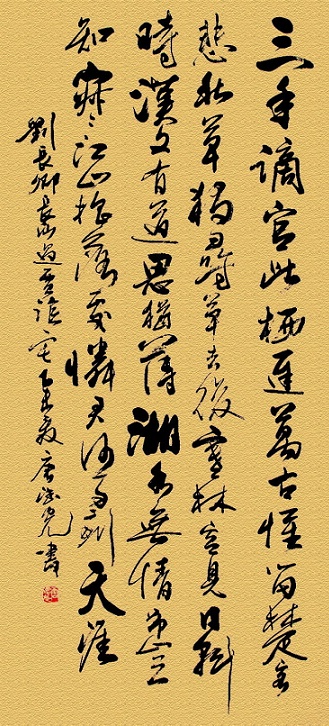 三年謫宦此栖遲萬古惟留楚客
悲秋草獨尋草去後寒林空見日斜
時漢文有道恩猶薄湘水無情弔豈
知寂〻江山搖落處憐君何事到天涯
劉長卿長沙過賈誼宅 唐 書